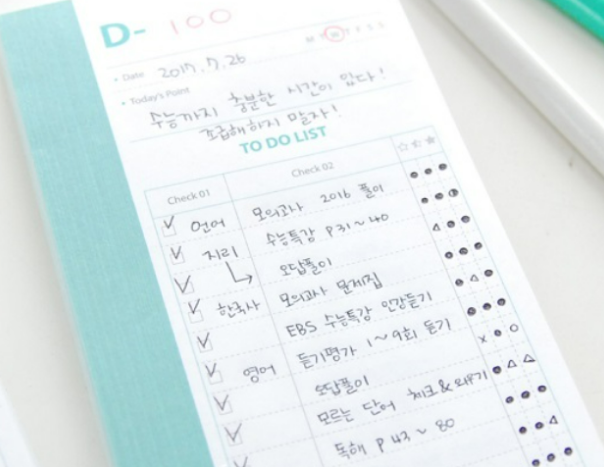 D- 100
M T W T F S S
Date 2017. 7. 26
Today's Point
수능까지 충분한 시간이 있다!
조급해하지 말자!
TO DO LIST
Check 01 Check 02
언어 모의고사 2016 풀이
지리 수능특강 P 31~40
오답풀이
한국사 모의고사 문제집
EBS 수능특강 인강듣기
영어 듣기평가 1~9회 듣기
오답풀이
모르는 단어 체크 & 외우기
독해 P 43~80